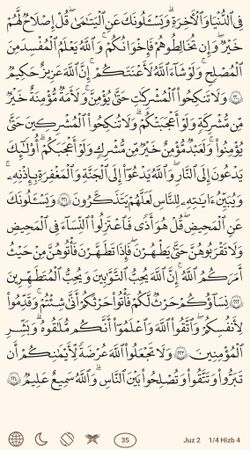 فِى ٱلدُّنْيَا وَٱلْءَاخِرَةِ ۗ وَيَسْـَٔلُونَكَ عَنِ ٱلْيَتَـٰمَىٰ ۖ قُلْ إِصْلَاحٌ لَّهُمْ
خَيْرٌ ۖ وَإِن تُخَالِطُوهُمْ فَإِخْوَٰنُكُمْ ۚ وَٱللَّهُ يَعْلَمُ ٱلْمُفْسِدَ مِنَ
ٱلْمُصْلِحِ ۚ وَلَوْ شَآءَ ٱللَّهُ لَأَعْنَتَكُمْ ۚ إِنَّ ٱللَّهَ عَزِيزٌ حَكِيمٌ
٢٢٠ وَلَا تَنكِحُوا۟ ٱلْمُشْرِكَـٰتِ حَتَّىٰ يُؤْمِنَّ ۚ وَلَأَمَةٌ مُّؤْمِنَةٌ خَيْرٌ
مِّن مُّشْرِكَةٍ وَلَوْ أَعْجَبَتْكُمْ ۗ وَلَا تُنكِحُوا۟ ٱلْمُشْرِكِينَ حَتَّىٰ
يُؤْمِنُوا۟ ۚ وَلَعَبْدٌ مُّؤْمِنٌ خَيْرٌ مِّن مُّشْرِكٍ وَلَوْ أَعْجَبَكُمْ ۗ أُو۟لَـٰٓئِكَ
يَدْعُونَ إِلَى ٱلنَّارِ ۖ وَٱللَّهُ يَدْعُوٓا۟ إِلَى ٱلْجَنَّةِ وَٱلْمَغْفِرَةِ بِإِذْنِهِۦ ۖ
وَيُبَيِّنُ ءَايَـٰتِهِۦ لِلنَّاسِ لَعَلَّهُمْ يَتَذَكَّرُونَ ٢٢١ وَيَسْـَٔلُونَكَ
عَنِ ٱلْمَحِيضِ ۖ قُلْ هُوَ أَذًى فَٱعْتَزِلُوا۟ ٱلنِّسَآءَ فِى ٱلْمَحِيضِ ۖ
وَلَا تَقْرَبُوهُنَّ حَتَّىٰ يَطْهُرْنَ ۖ فَإِذَا تَطَهَّرْنَ فَأْتُوهُنَّ مِنْ حَيْثُ
أَمَرَكُمُ ٱللَّهُ ۚ إِنَّ ٱللَّهَ يُحِبُّ ٱلتَّوَّٰبِينَ وَيُحِبُّ ٱلْمُتَطَهِّرِينَ
٢٢٢ نِسَآؤُكُمْ حَرْثٌ لَّكُمْ فَأْتُوا۟ حَرْثَكُمْ أَنَّىٰ شِئْتُمْ ۖ وَقَدِّمُوا۟
لِأَنفُسِكُمْ ۚ وَٱتَّقُوا۟ ٱللَّهَ وَٱعْلَمُوٓا۟ أَنَّكُم مُّلَـٰقُوهُ ۗ وَبَشِّرِ
ٱلْمُؤْمِنِينَ ٢٢٣ وَلَا تَجْعَلُوا۟ ٱللَّهَ عُرْضَةً لِّأَيْمَـٰنِكُمْ أَن
تَبَرُّوا۟ وَتَتَّقُوا۟ وَتُصْلِحُوا۟ بَيْنَ ٱلنَّاسِ ۗ وَٱللَّهُ سَمِيعٌ عَلِيمٌ ٢٢٤
35 Juz 2 1/4 Hizb 4